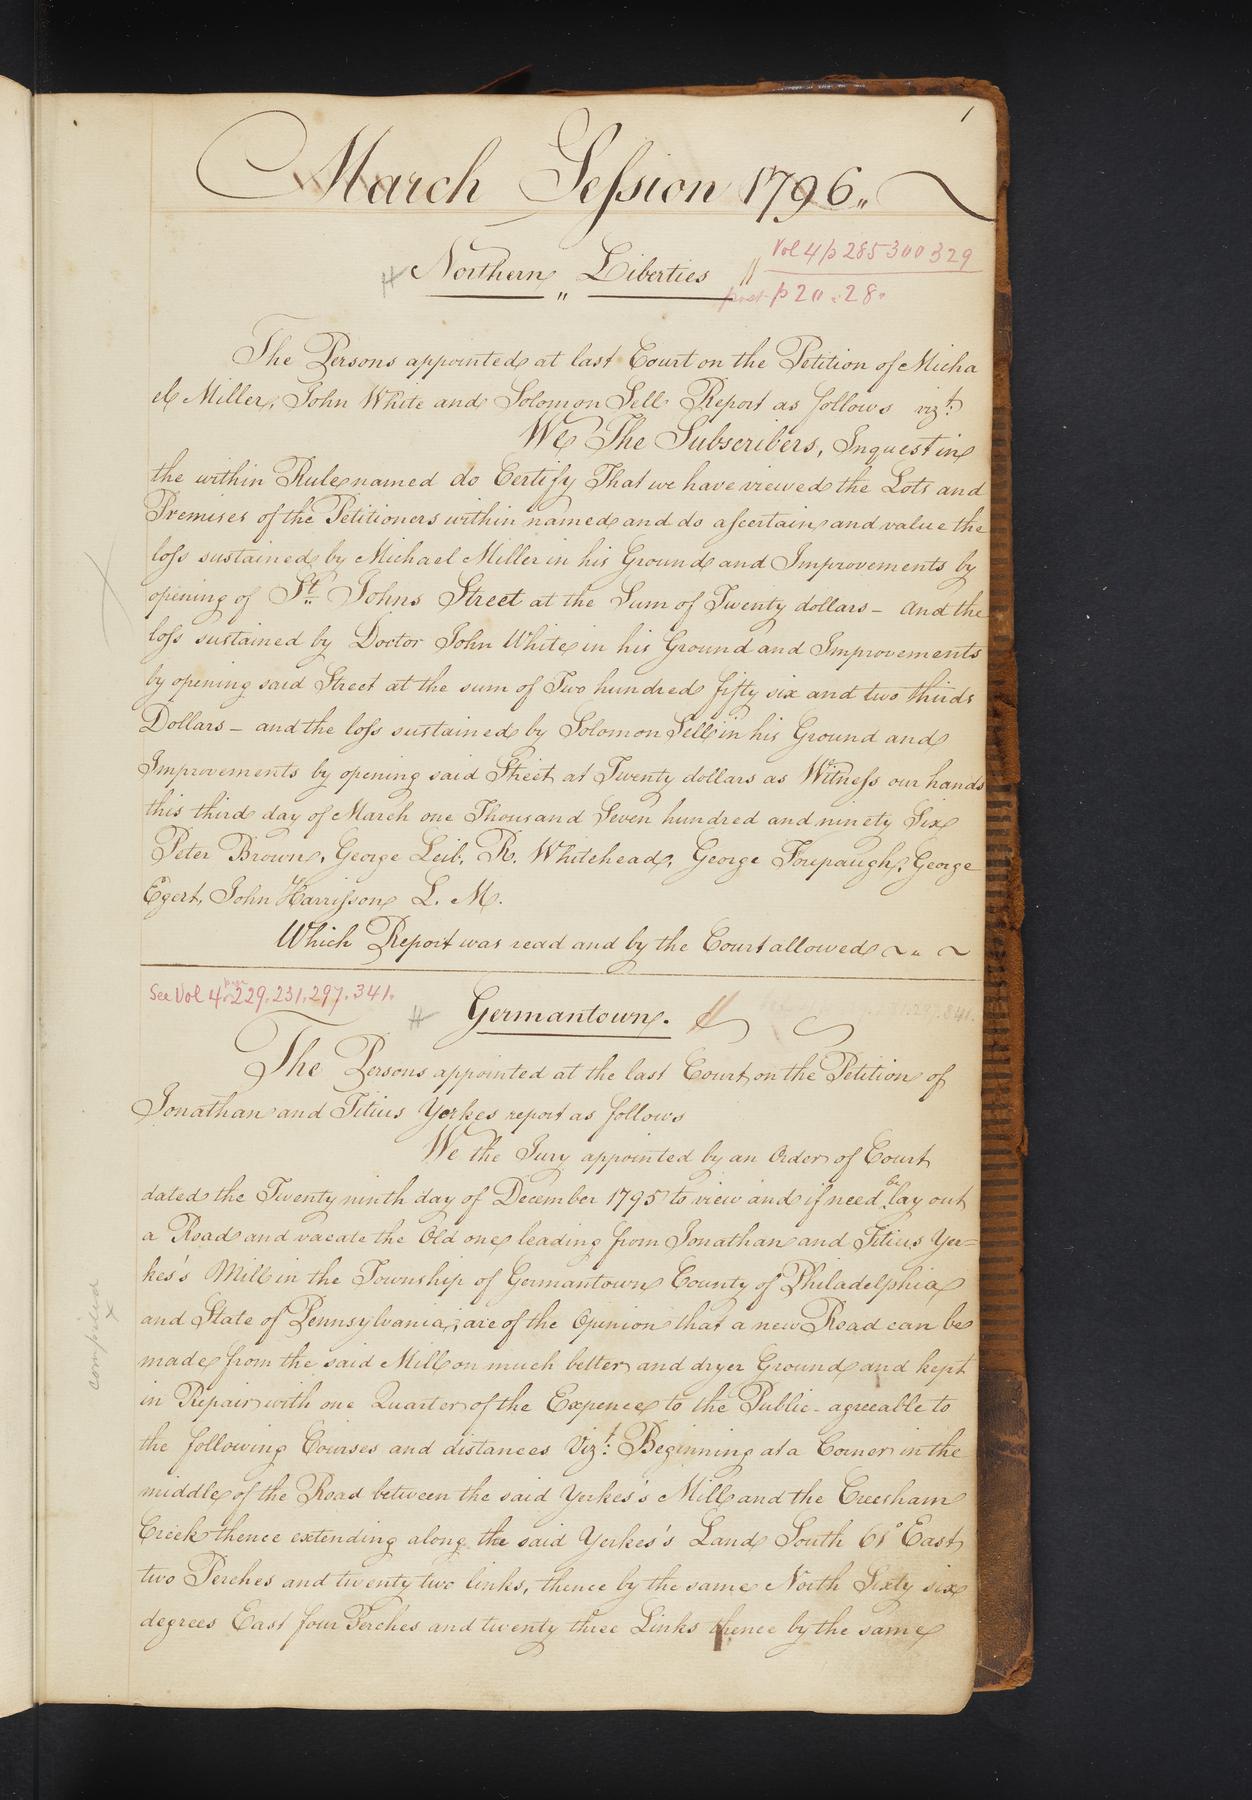 1
March Session 1796 „
Northern „ Liberties
Vol 4 p 285 300 329
post p 20 . 28 .
The Persons appointed at last Court on the Petition of Micha
el Miller, John White and Solomon Sell Report as follows vizt.
We The Subscribers, Inquest in
the within Rule named do Certify That we have viewed the Lots and
Premises of the Petitioners within named and do ascertain and value the
loss sustained by Michael Miller in his Ground and Improvements by
opening of St. Johns Street at the Sum of Twenty dollars – and the
loss sustained by Doctor John White in his Ground and Improvements
by opening said Street at the sum of Two hundred fifty six and two thirds
Dollars – and the loss sustained by Solomon Sell in his Ground and
Improvements by opening said Street at Twenty dollars as Witness our hands
this third day of March one Thousand Seven hundred and ninety Six
Peter Brown, George Leib, R. Whitehead, George Forepaugh, George
Egert, John Harrisson L. M.
Which Report was read and by the Court allowed ~ „ ~
See Vol 4 page 229. 231. 297. 341.
Germantown.
The Persons appointed at the last Court on the Petition of
Jonathan and Titius Yerkes report as follows
We the Jury appointed by an Order of Court
dated the Twenty ninth day of December 1795 to view and if need be lay out
a Road and vacate the Old one leading from Jonathan and Titius Yer=
kes's Mill in the Township of Germantown County of Philadelphia
and State of Pennsylvania; are of the Opinion that a new Road can be
made from the said Mill on much better and dryer Ground and kept
in Repair with one Quarter of the Expence to the Public - agreeable to
the following Courses and distances Vizt: Beginning at a Corner in the
middle of the Road between the said Yerkes's Mill and the Creesham
Creek thence extending along the said Yerkes's Land South 61° East
two Perches and twenty two links, thence by the same North Sixty six
degrees East four Perches and twenty three Links thence by the same
compiled